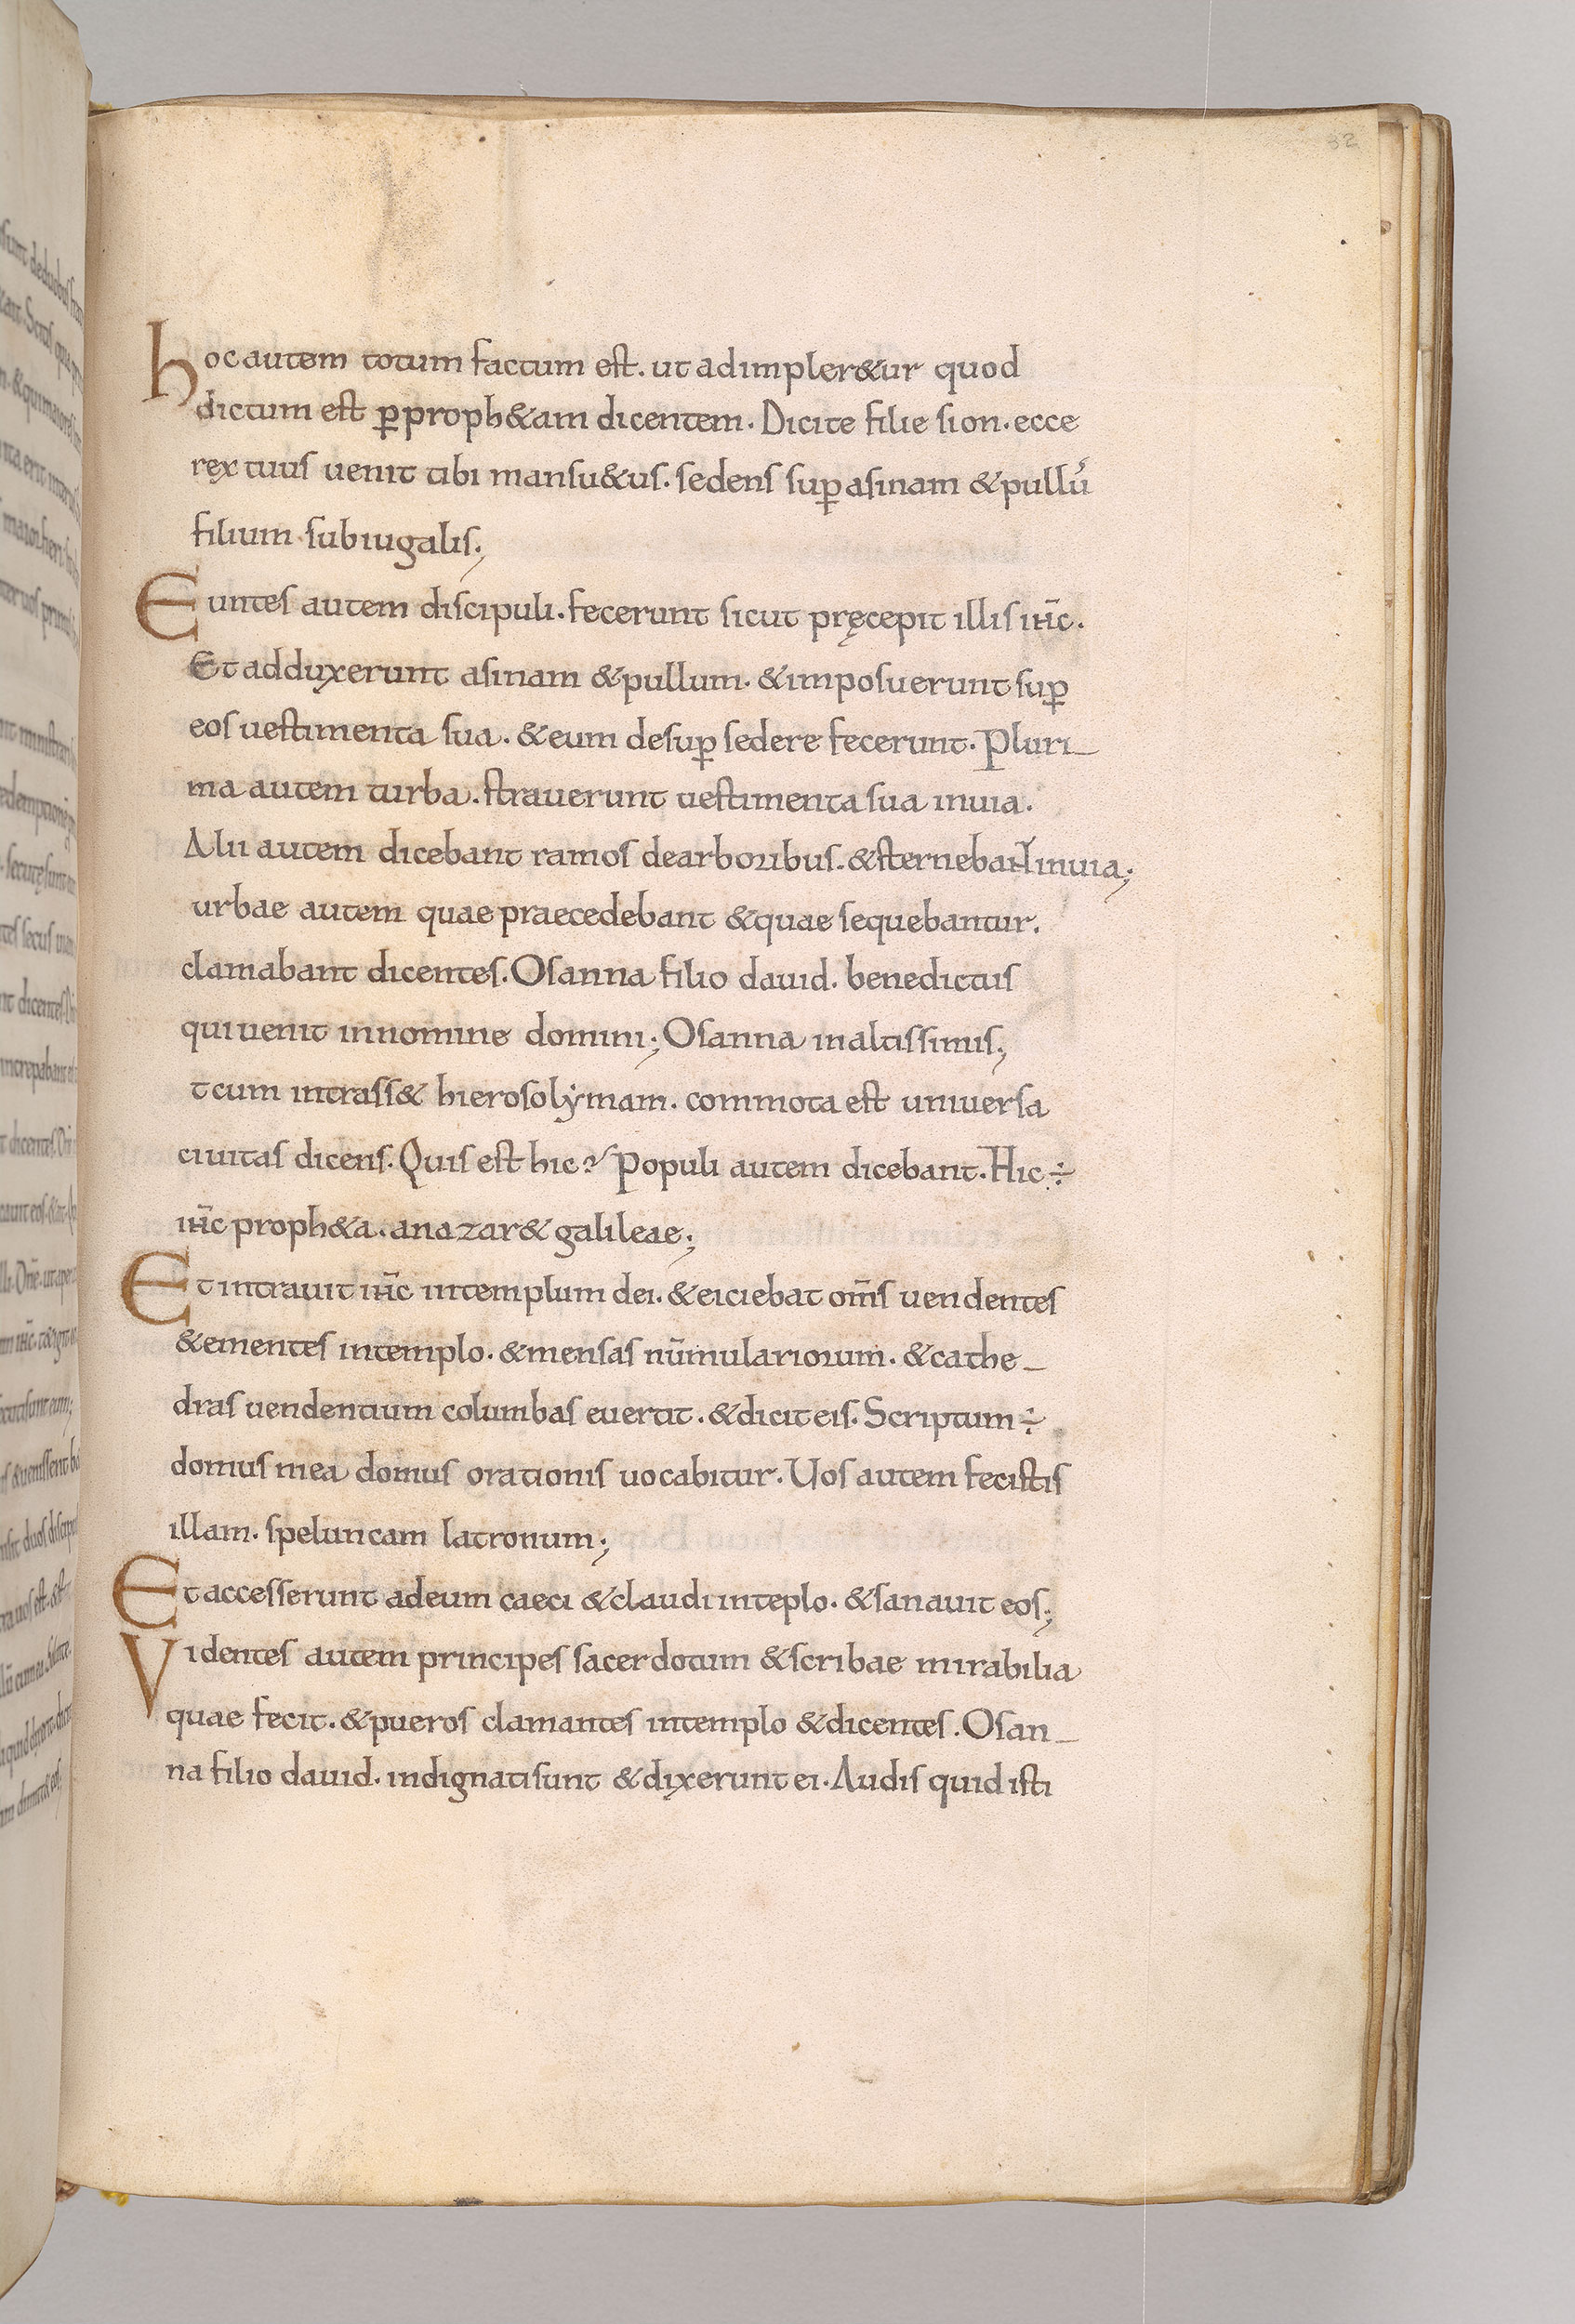 32
hoc autem totum factum est. ut adimpler&ur quod
dictum est ꝑ proph&am dicentem. Dicite filie sion. ecce
rex tuus uenit tibi mansu&us. sedens suꝑ asinam & pullū
filium subiugalis;
Euntes autem discipuli. fecerunt sicut pręcepit illis iħc̄.
Et adduxerunt asinam & pullum. & imposuerunt suꝑ
eos uestimenta sua. & eum desuꝑ sedere fecerunt. Pluri_
ma autem turba. strauerunt uestimenta sua inuia.
Alii autem dicebant ramos dearboribus. & sternebant inuia;
urbae autem quae praecedebant & quae sequebantur.
clamabant dicentes. Osanna filio dauid. benedictus
qui uenit innomine domini; Osanna inaltissimis;
t cum intrass& hierosolẏmam. commota est uniuersa
ciuitas dicens. Quis est hic? Populi autem dicebant. Hic ÷
iħc̄ proph&a. anazar& galileae;
Et intrauit iħc̄ intemplum dei. & eiciebat om̄s uendentes
& ementes intemplo. & mensas nūmulariorum. & cathe_
dras uendentium columbas euertit. & dicit eis. Scriptum ÷
domus mea domus orationis uocabitur. Uos autem fecistis
illam. speluncam latronum;
Et accesserunt adeum caeci & claudi inteplo. & sanauit eos;
Videntes autem principes sacerdotum & scribae mirabilia
quae fecit. & pueros clamantes intemplo & dicentes. Osan_
na filio dauid. indignati sunt & dixerunt ei. Audis quid isti